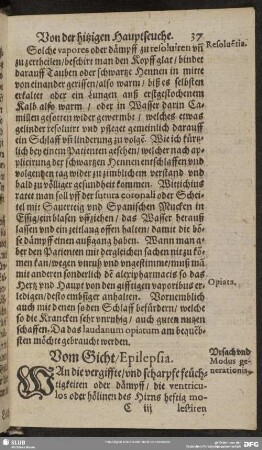 Von der hitzigen Hauptseuche. 37
Solche vapores oder dämpff zu resoluiren vñ
zu zertheilen/beschirt man den Kopff glat/bindet
darauff Tauben oder schwartze Hennen in mitte
von einander gerissen/also warm/ biß es selbsten
erkaltet oder ein jungen auß erstgestochenem
Kalb also warm/ oder in Wasser darin Ca-
millen gesotten wider gewermbt/ welches etwas
gelinder resoluirt vnd pfleget gemeinlich darauff
ein Schlaff vñ linderung zu volgẽ. Wie ich kürtz-
lich bey einem Patienten gesehen/welcher nach ap-
plicirung der schwartzen Hennen entschlaffen vnd
volgenden tag wider zu zimblichem verstand vnd
bald zu völliger gesundheit kommen. Wittichius
ratet man soll vff der sutura coronali oder Schei-
tel mit Saurteig vnd Spanischen Mucken in
Essig/ein blasen vffziehen/ das Wasser herauß
lassen vnd ein zeitlang offen halten/ damit die bö-
se dämpff einen außgang haben. Wann man a-
ber den Patienten mit dergleichen sachen nit zů kõ-
men kan/wegen vnruh vnd vngestümme/muß mã
mit anderen sonderlich dẽ alexipharmacis so das
Hertz vnd Haupt von den gifftigen vaporibus er-
ledigen/desto embsiger anhalten. Vornemblich
auch mit denen so den Schlaff befürdern/ welche
so die Krancken sehr vnruhig/ auch guten nutzen
schaffen. Da das laudanum opiatum am bequẽh-
sten möchte gebraucht werden.
Resoluẽtia.
Opiata.
Vom Gicht/Epilepsia.
Vrsach vnd
Modus ge-
nerationis.
WAn die vergiffte/vnd scharpffe feüch-
tigkeiten oder dämpff/ die ventricu-
los oder hölinen des Hirns hefftig mo-
C iij
lestiren
SLUB